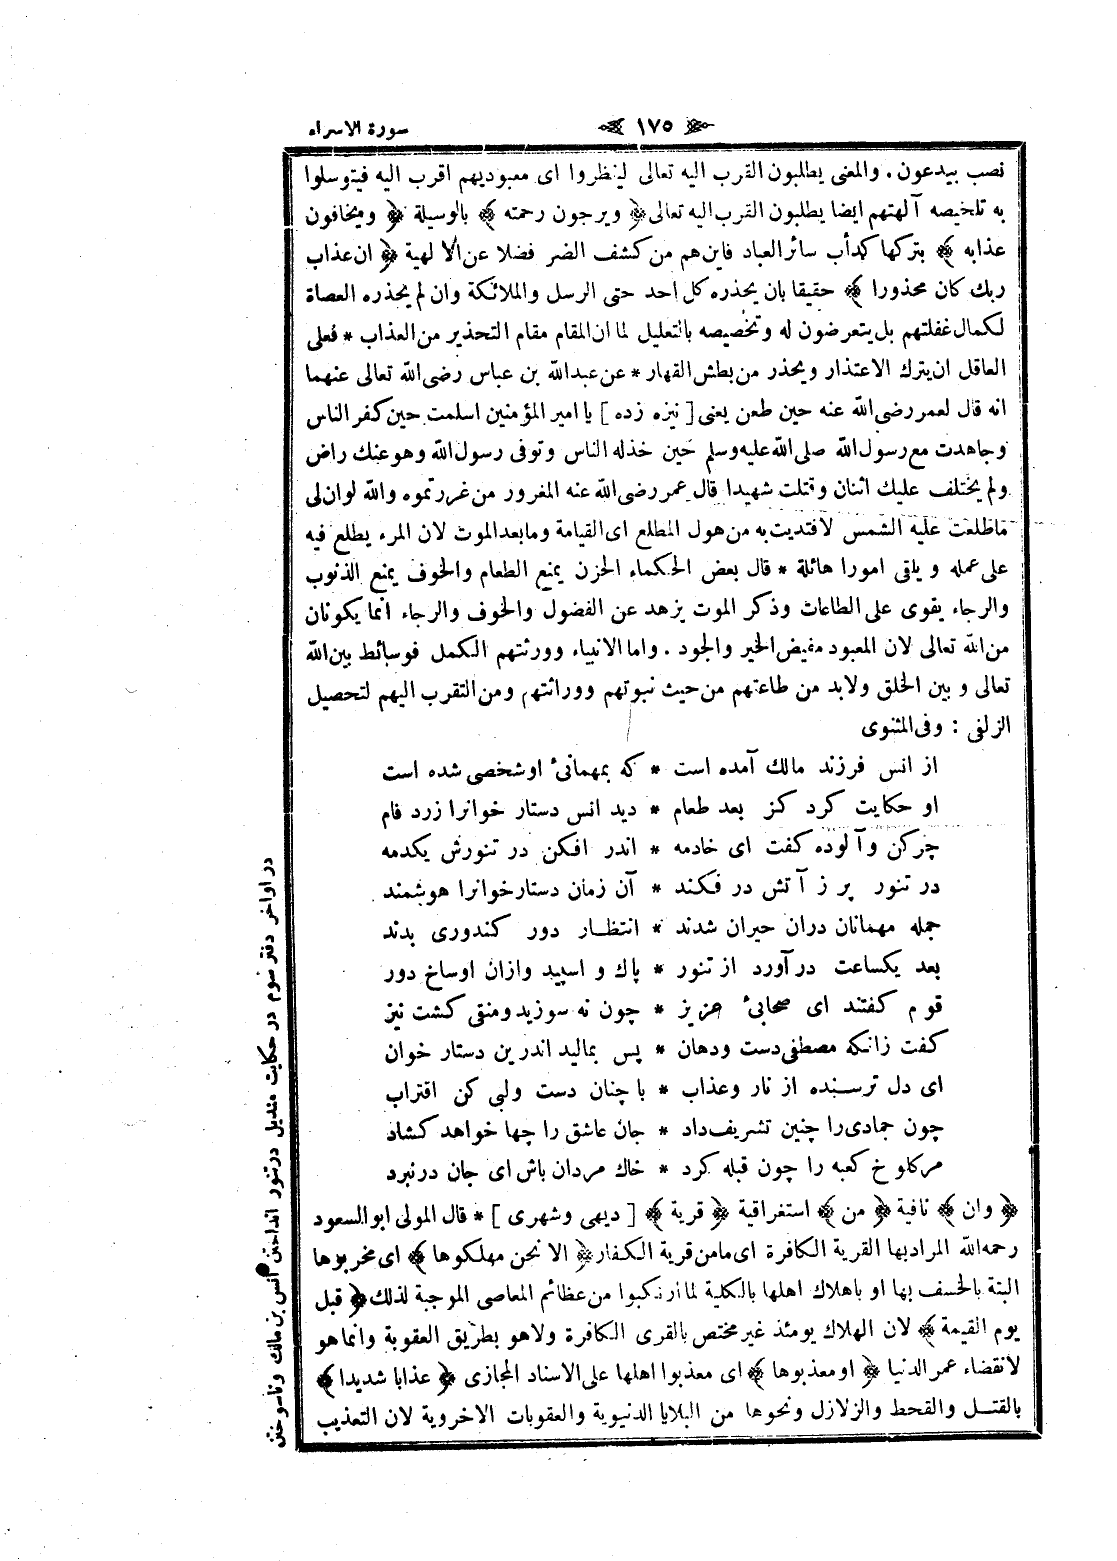 سورة الاسراء
﴿ ١٧٥ ﴾
نصب بيدعون . والمعنى يطلبون القرب اليه تعالى لينظروا اى معبوديهم اقرب اليه فيتوسلوا
به تلخيصه آلهتهم ايضا يطلبون القرب اليه تعالى ﴿ ويرجون رحمته ﴾ بالوسيلة ﴿ ويخافون
عذابه ﴾ بتركها كدأب سائر العباد فاين هم من كشف الضر فضلا عن الالهية ﴿ ان عذاب
ربك كان محذورا ﴾ حقيقا بان يحذره كل احد حتى الرسل والملائكة وان لم يحذره العصاة
لكمال غفلتهم بل يتعرضون له وتخصيصه بالتعليل لما ان المقام مقام التحذير من العذاب * فعلى
العاقل ان يترك الاعتذار ويحذر من بطش القهار * عن عبدالله بن عباس رضى الله تعالى عنهما
انه قال لعمر رضى الله عنه حين طعن يعنى [ نيزه زده ] يا امير المؤمنين اسلمت حين كفر الناس
وجاهدت مع رسول الله صلى الله عليه وسلم حين خذله الناس وتوفى رسول الله وهو عنك راض
ولم يختلف عليك اثنان وقتلت شهيدا قال عمر رضى الله عنه المغرور من غررتموه والله لو ان لى
ماطلعت عليه الشمس لافتديت به من هول المطلع اى القيامة وما بعد الموت لان المرء يطلع فيه
على عمله ويلقى امورا هائلة * قال بعض الحكماء الحزن يمنع الطعام والخوف يمنع الذنوب
والرجاء يقوى على الطاعات وذكر الموت يزهد عن الفضول والخوف والرجاء انما يكونان
من الله تعالى لان المعبود مفيض الخير والجود . واما الانبياء وورثتهم الكمل فوسائط بين الله
تعالى وبين الخلق ولابد من طاعتهم من حيث نبوتهم ووراثتهم ومن التقرب اليهم لتحصيل
الزلفى : وفى المثنوى
از انس فرزند مالك آمده است * كه بمهمانىٔ او شخصى شده است
او حكايت كرد كز بعد طعام * ديد انس دستار خوانرا زرد فام
چركن وآلوده كفت اى خادمه * اندر افكن در تنورش يكدمه
در تنور پر ز آتش در فكند * آن زمان دستار خوانرا هوشمند
جمله مهمانان دران حيران شدند * انتظار دور كندورى بدند
بعد يكساعت در آورد از تنور * پاك و اسپيد وازان اوساخ دور
قوم كفتند اى صحابىٔ عزيز * چون نه سوزيد ومنقى كشت نيز
كفت زانكه مصطفى دست ودهان * پس بماليد اندرين دستار خوان
اى دل ترسنده از نار وعذاب * با چنان دست ولبى كن اقتراب
چون جمادى را چنين تشريف داد * جان عاشق را چها خواهد كشاد
مر كلوخ كعبه را چون قبله كرد * خاك مردان باش اى جان در نبرد
﴿ وان ﴾ نافية ﴿ من ﴾ استغراقية ﴿ قرية ﴾ [ ديهى وشهرى ] * قال المولى ابو السعود
رحمه الله المراد بها القرية الكافرة اى مامن قرية الكفار ﴿ الا نحن مهلكوها ﴾ اى مخربوها
البتة بالخسف بها او باهلاك اهلها بالكلية لما ارتكبوا من عظائم المعاصى الموجبة لذلك ﴿ قبل
يوم القيمة ﴾ لان الهلاك يومئذ غير مختص بالقرى الكافرة ولاهو بطريق العقوبة وانما هو
لانقضاء عمر الدنيا ﴿ او معذبوها ﴾ اى معذبوا اهلها على الاسناد المجازى ﴿ عذابا شديدا ﴾
بالقتل والقحط والزلازل ونحوها من البلايا الدنيوية والعقوبات الاخروية لان التعذيب
در اواخر دفتر سوم در حكايت منديل در تنور انداختن انس بن مالك وناسوختن